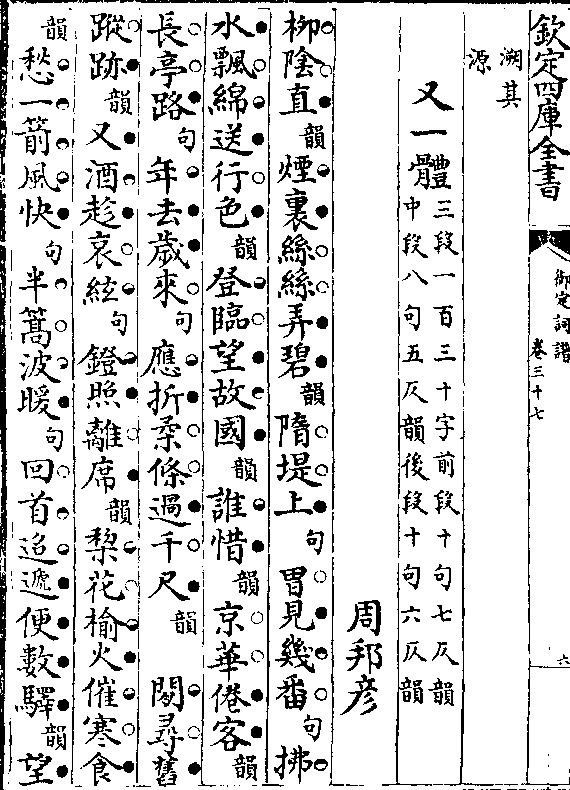 欽定四庫全書
御定詞譜
卷三十七
六
溯其
源
又一體三段一百三十字前段十句七仄韻
中段八句五仄韻後段十句六仄韻
周邦彦
柳隂直韻煙裏絲絲弄碧韻隋堤上句曾見幾番句拂
水飄綿送行色韻登臨望故國韻誰惜韻京華倦客韻
長亭路句年去嵗來句應折柔條過千尺韻 閒尋舊
蹤跡韻又酒趁哀絃句鐙照離席韻梨花榆火催寒食
韻愁一箭風快句半篙波暖句回首迢遞便數驛韻望